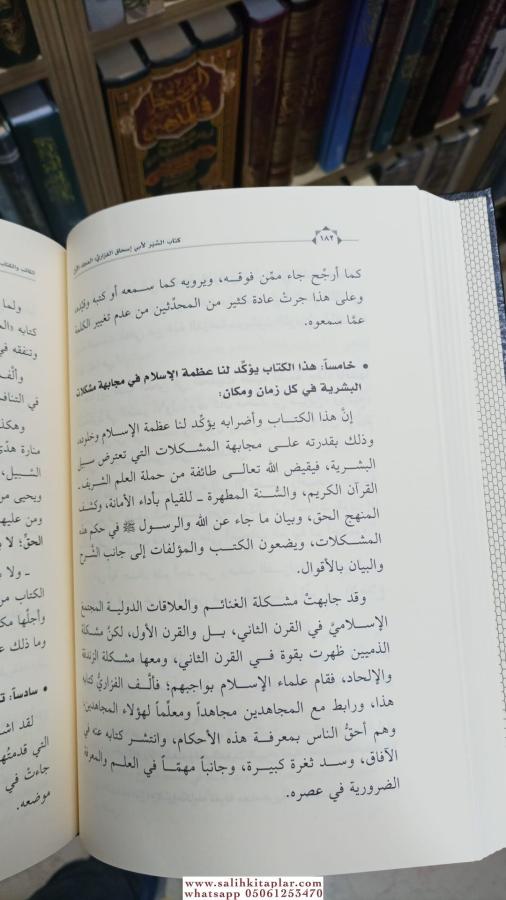 كتاب السير لأبي إسحاق الفزاري، المجلد الأول
١٨٢
كما أرجّح جاء ممّن فوقه، ويرويه كما سمعه أو كتبه وقيّده،
وعلى هذا جرتْ عادة كثير من المحدّثين من عدم تغيير الكلمة
عمّا سمعوه.
• خامساً: هذا الكتاب يؤكّد لنا عظمة الإسلام في مجابهة مشكلات
البشرية في كل زمان ومكان:
إنَّ هذا الكتاب وأضرابه يؤكّد لنا عظمة الإسلام وخلوده،
وذلك بقدرته على مجابهة المشكلات التي تعترض سبيل
البشرية، فيقيض الله تعالى طائفة من حملة العلم الشريف ـ
القرآن الكريم، والسُّنة المطهرة ـ للقيام بأداء الأمانة، وكشف
المنهج الحق، وبيان ما جاء عن الله والرسول ﷺ في حكم هذه
المشكلات، ويضعون الكتب والمؤلفات إلى جانب الشَّرح
والبيان بالأقوال.
وقد جابهتْ مشكلة الغنائم والعلاقات الدولية المجتمع
الإسلاميَّ في القرن الثاني، بل والقرن الأول، لكنَّ مشكلة
الذميين ظهرت بقوة في القرن الثاني، ومعها مشكلة الزندقة
والإلحاد، فقام علماء الإسلام بواجبهم؛ فألَّف الفزاريُّ كتابه
هذا، ورابط مع المجاهدين مجاهداً ومعلّماً لهؤلاء المجاهدين؛
وهم أحقُّ الناس بمعرفة هذه الأحكام، وانتشر كتابه عنه في
الآفاق، وسد ثغرة كبيرة، وجانباً مهمّاً في العلم والمعرفة
الضرورية في عصره.
ولما
كتابه
وتنفقه في
وألّف
في التنافس
وهكذا
منارة هدًى
السَّبيل،
ويحيى من
ومن عليها
الحقّ؛ لا
ـ ولا
الكتاب من
وأجلّها
وما ذلك
• سادساً:
لقد
التي قدمتُها
جاءتْ في
موضعه.
www.salihkitaplar.com
whatsapp 05061253470